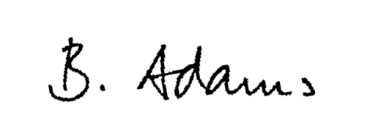 B. Adams